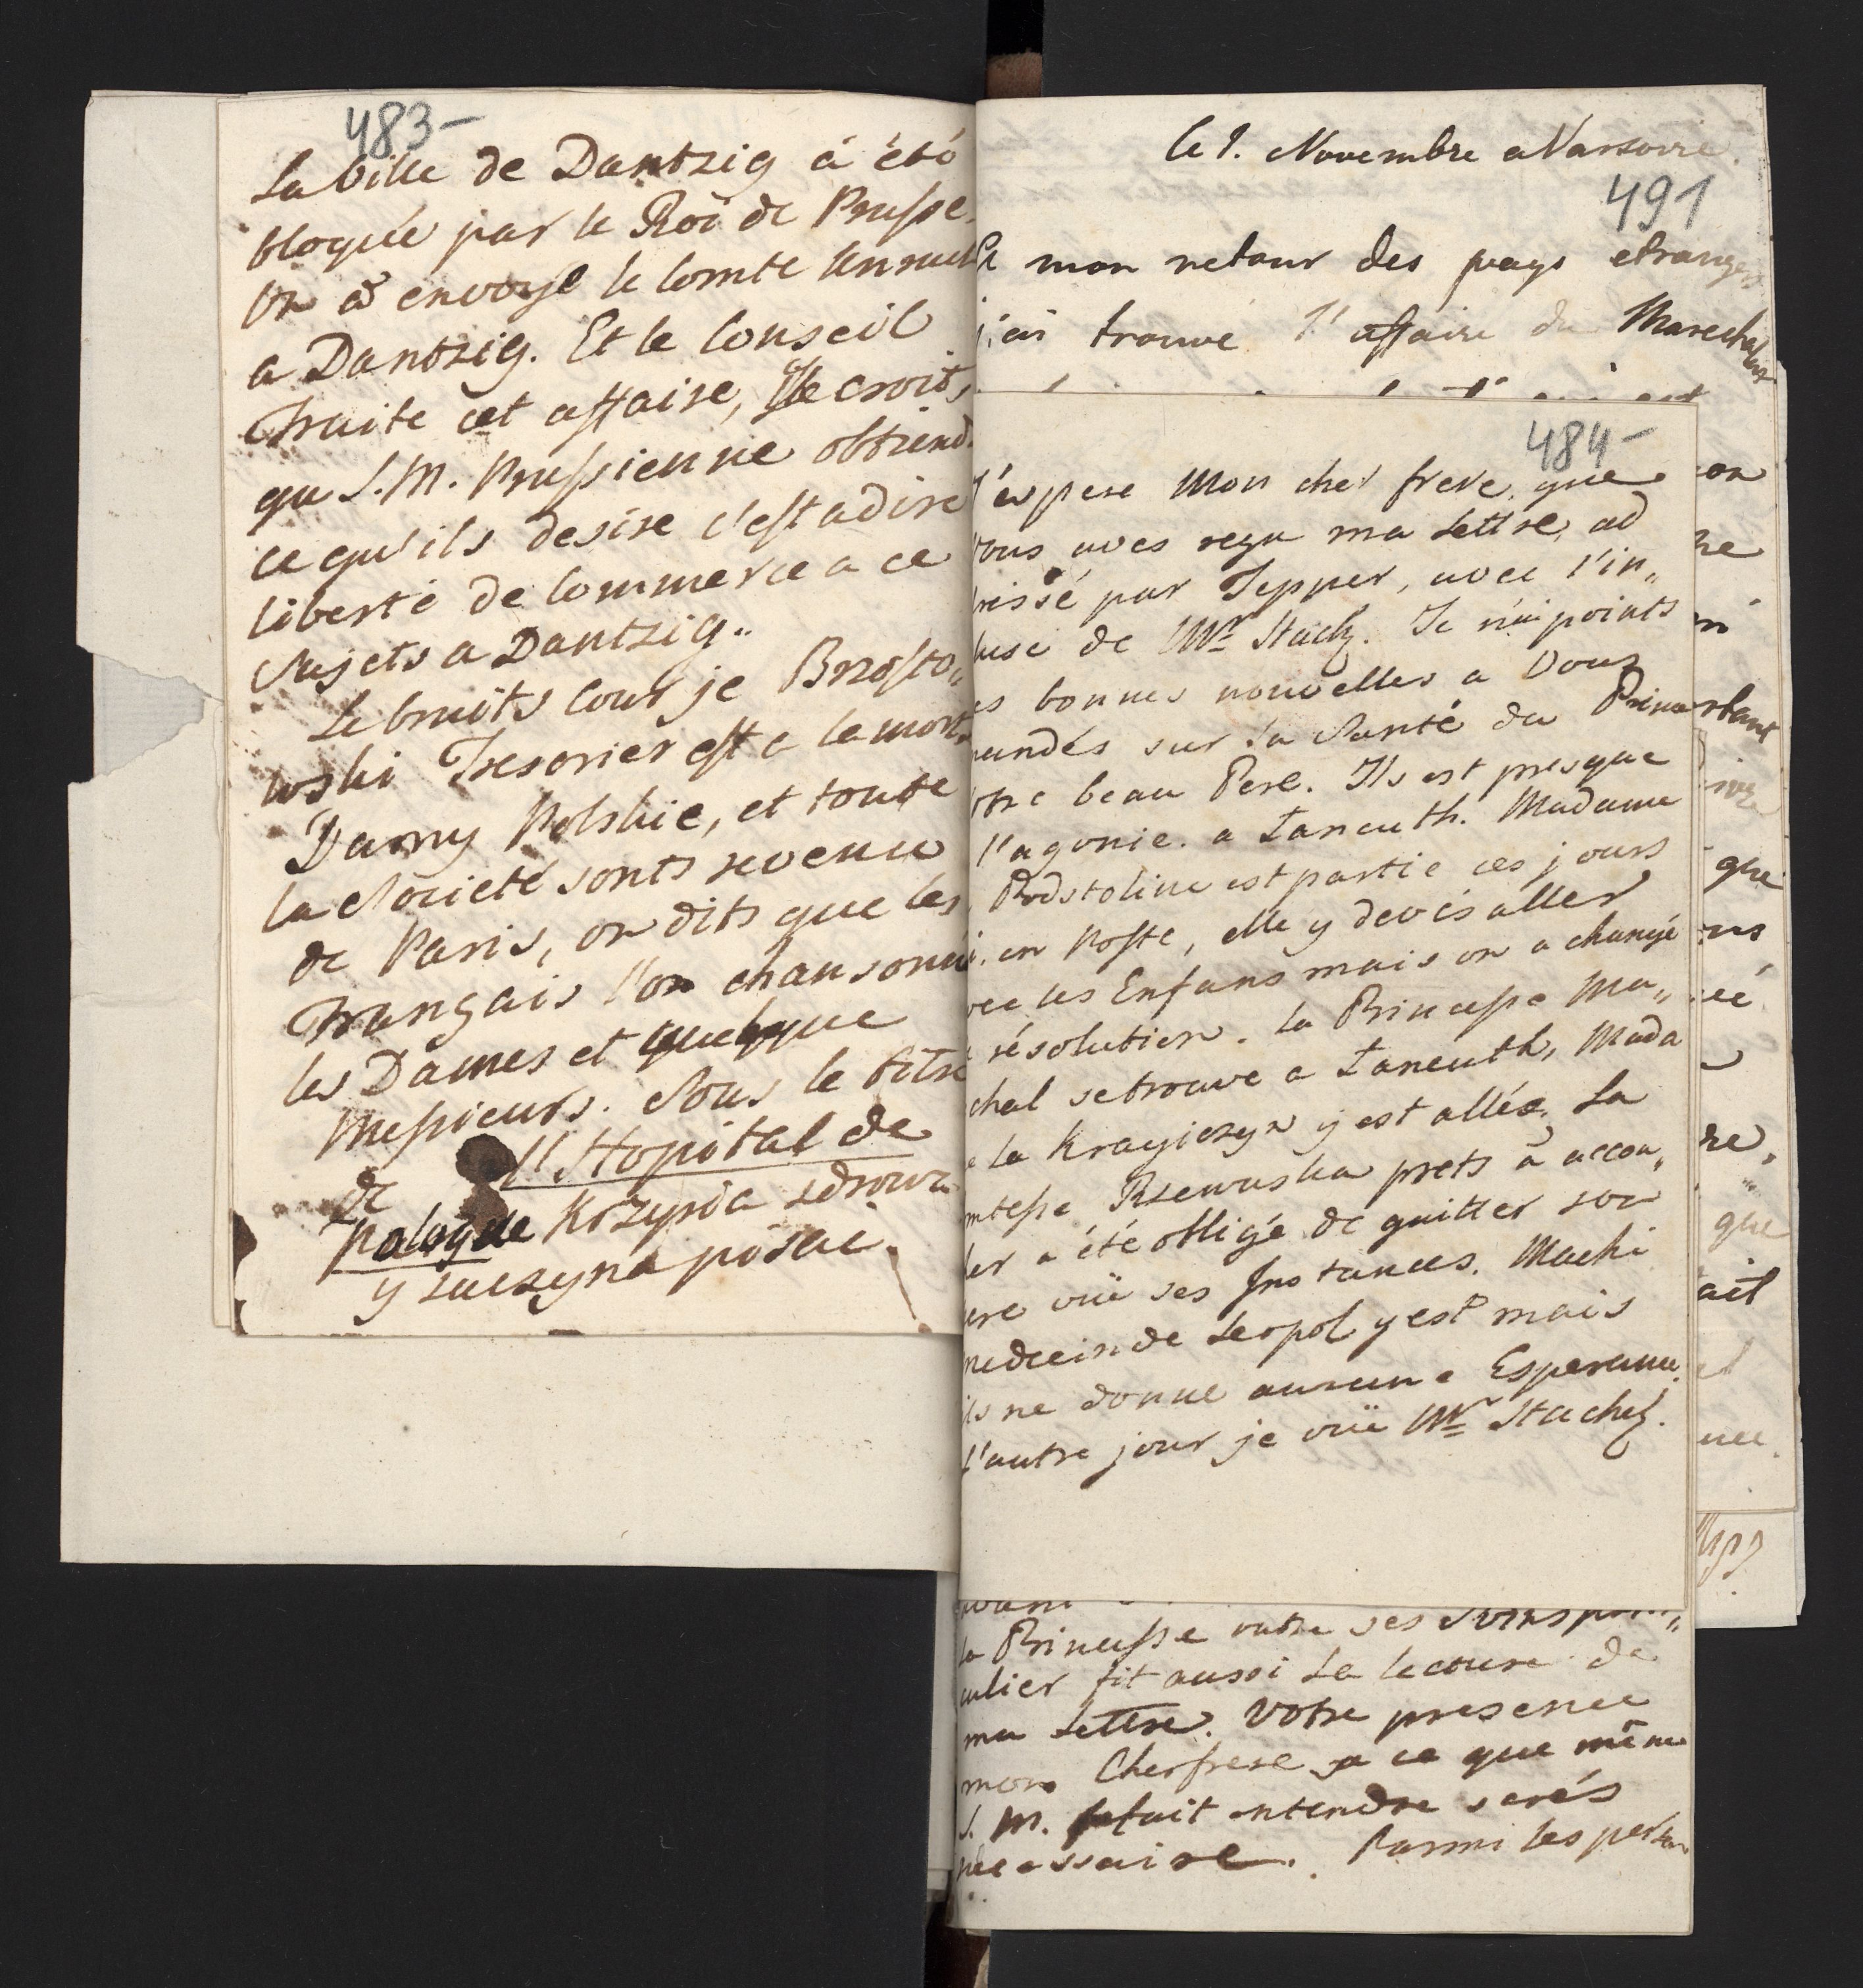 483-
La ville de Dantzig à été
bloquée par le Roi de Prusse.
On à envoyé le Comte Unruh
a Dantzig. Et le Conseil
traite cet affaire, Je croit,
que S. M. Prussienne obtiend.
ce qu'ils desire c'est adire
liberté de Commerce a ce
sujets a Dantzig..
Le bruits cour je Brzosto„
wski Tresorier est a la mort,
Damy Polskie, et toute
la Societé sonts revenu
de Paris, on dits que les
Français l'on chansonné
les Dames et quelque
Messieurs. Sous le titre
de l'Hopital de
Pologne Krzypia zdrowa
y zaczyna pisać.
le 1. Novembre a Varsovie.
491
A mon retour des pays etrangers
j'ai trouvé l'affaire du Marechal
484-
J'espere Mon cher frere, que
vous aves reçu ma Lettre, ad
ressé par Tepper, avec l'in„
luse de Mr Stack. Je n'ai points
es bonnes nouvelles a Vous
andés sur la Santé du Prince
otre beau Pere. Ils est presque
l'agonie. a Lancuth. Madame
Podstoline est partie ces jours
i. en Poste, elle y devés aller
vec les Enfans mais on a changé
résolution. La Princesse Ma„
chal se trouve a Lancuth, Mada
e la Krayiczyn y est allée. La
mtesse Rzewuska prets à accou„
her a été obligé de quitter son
ere vûe ses Instances. Macki
medecin de Leopol y est mais
ils ne donne aucune Esperance.
L'autre jour je vûe Mr Stackel.
la Princesse outre ses
culier fit aussi la lecture de
ma Lettre. Votre presence
mon Cher frere a ce que même
S. M. fait entendre serés
necessaire. Parmi les person